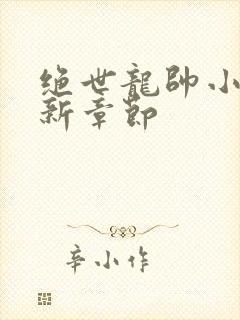 绝世龍帥小
新章節
辛小作